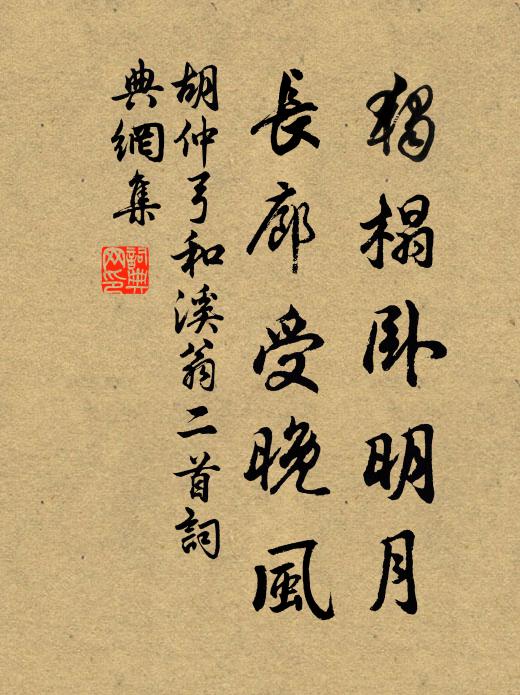 獨榻臥明月
長廊受晚風
胡仲弓和溪翁二首詞
典網集
詞典網印